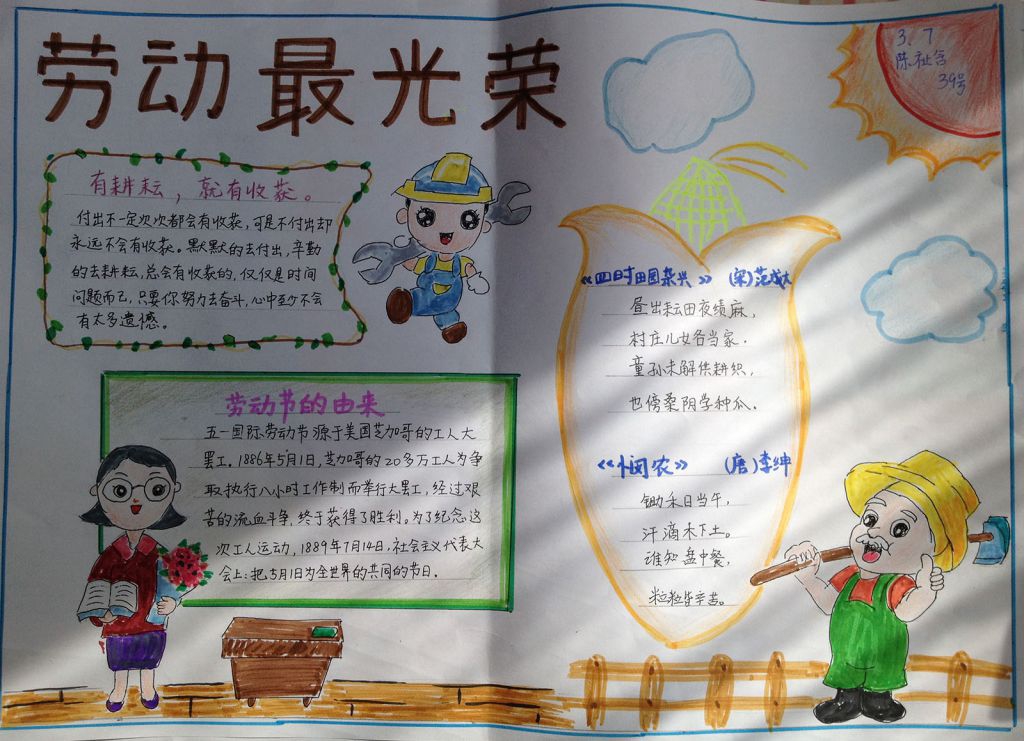 劳动最光荣
3、7
陈祉含
39号
有耕耘，就有收获。
付出不一定次次都会有收获，可是不付出却
永远不会有收获。默默的去付出，辛勤
的去耕耘，总会有收获的，仅仅是时间
问题而已，只要你努力去奋斗，心中至少不会
有太多遗憾。
劳动节的由来
五一国际劳动节源于美国芝加哥的工人大
罢工。1886年5月1日，芝加哥的20多万工人为争
取执行八小时工作制而举行大罢工，经过艰
苦的流血斗争，终于获得了胜利。为了纪念这
次工人运动，1889年7月14日，社会主义代表大
会上：把5月1日为全世界的共同的节日．
《四时田园杂兴》 （宋）范成大
昼出耘田夜绩麻，
村庄儿女各当家．
童孙未解供耕织，
也傍桑阴学种瓜．
《悯农》 （唐）李绅
锄禾日当午，
汗滴禾下土。
谁知盘中餐，
粒粒皆辛苦。